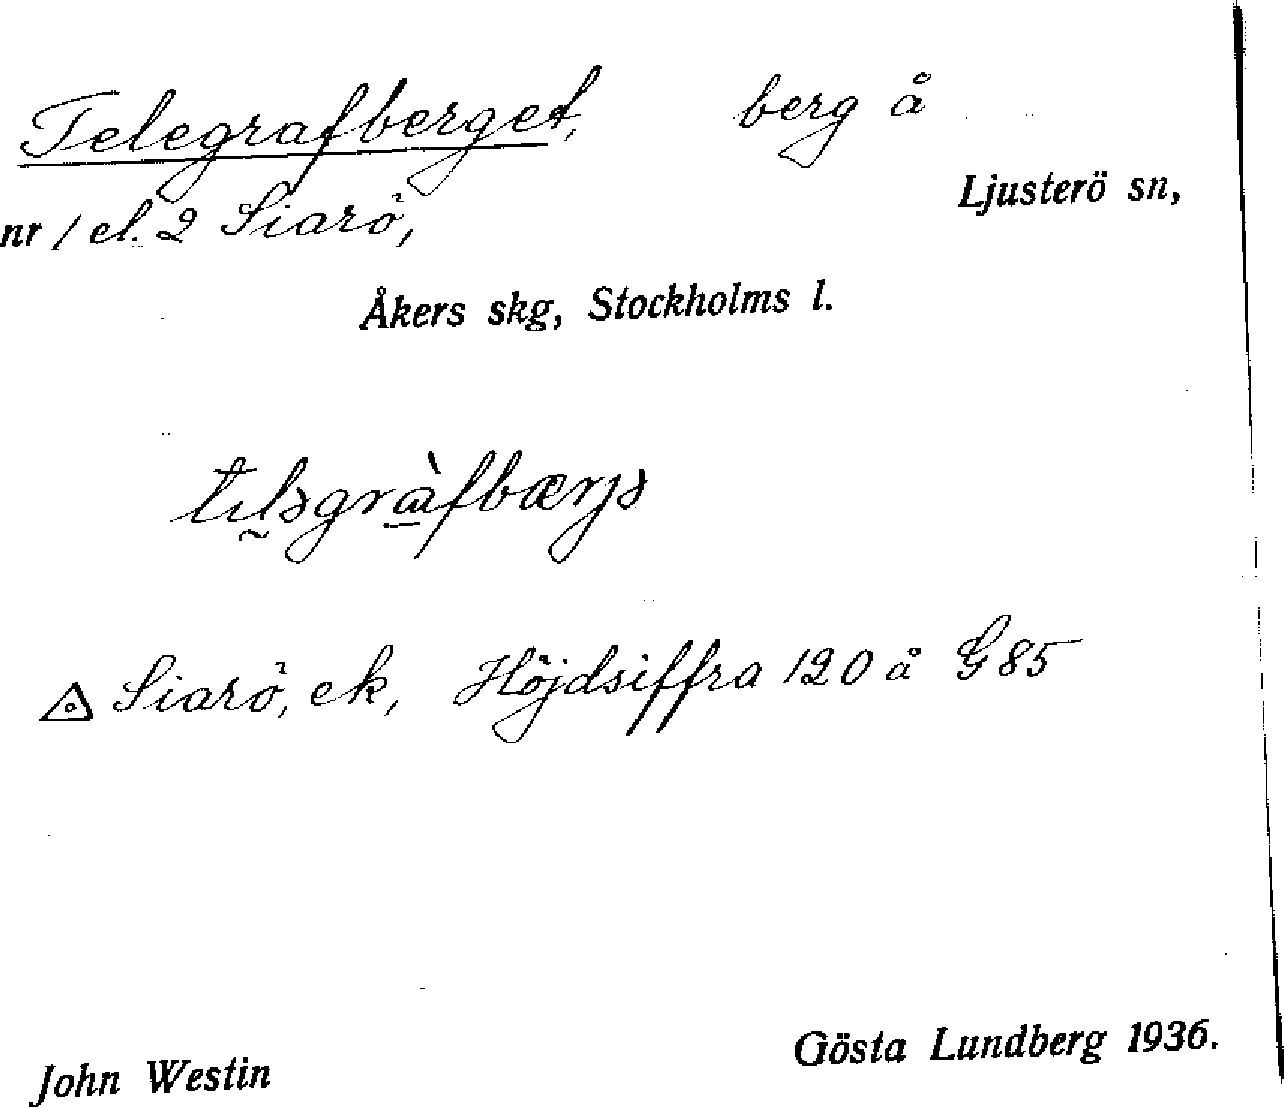 Telegrafberget, berg å
Ljusterö sn,
nr 1 el. 2 Siarö,
Åkers skg, Stockholms l.
Siarö, ek, Höjdsiffra 120 å G 85
John Westin
Gösta Lundberg 1936.